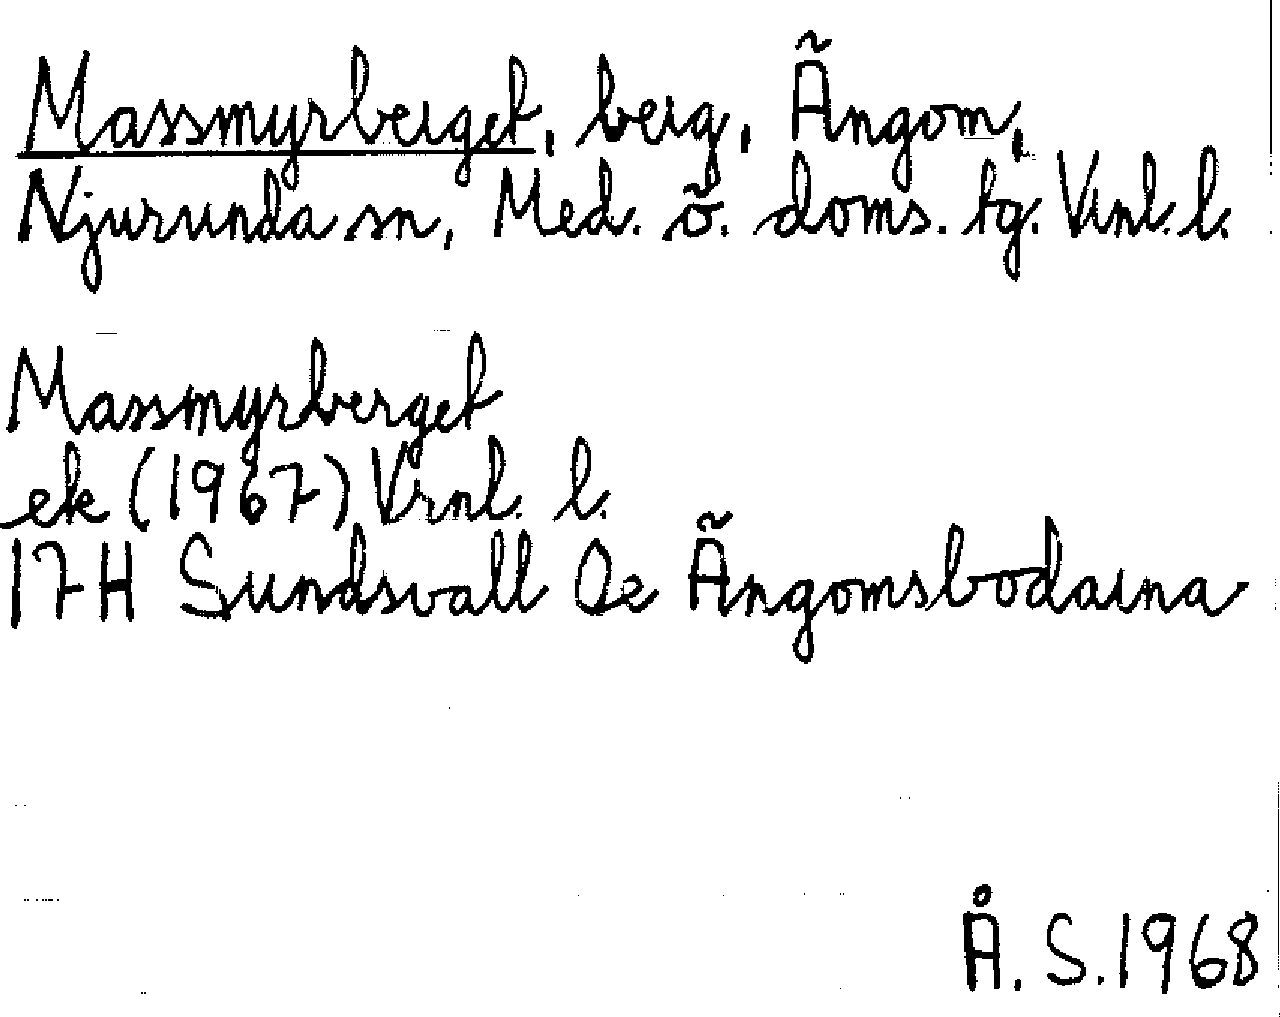 Massmyrberget, berg, Ängom,
Njurunda sn, Med. ö. doms. tg. Vrnl. l.
Massmyrberget
ek (1967) Vrnl. l.
17H Sundsvall 0e Ängomsbodarna
Å. S. 1968